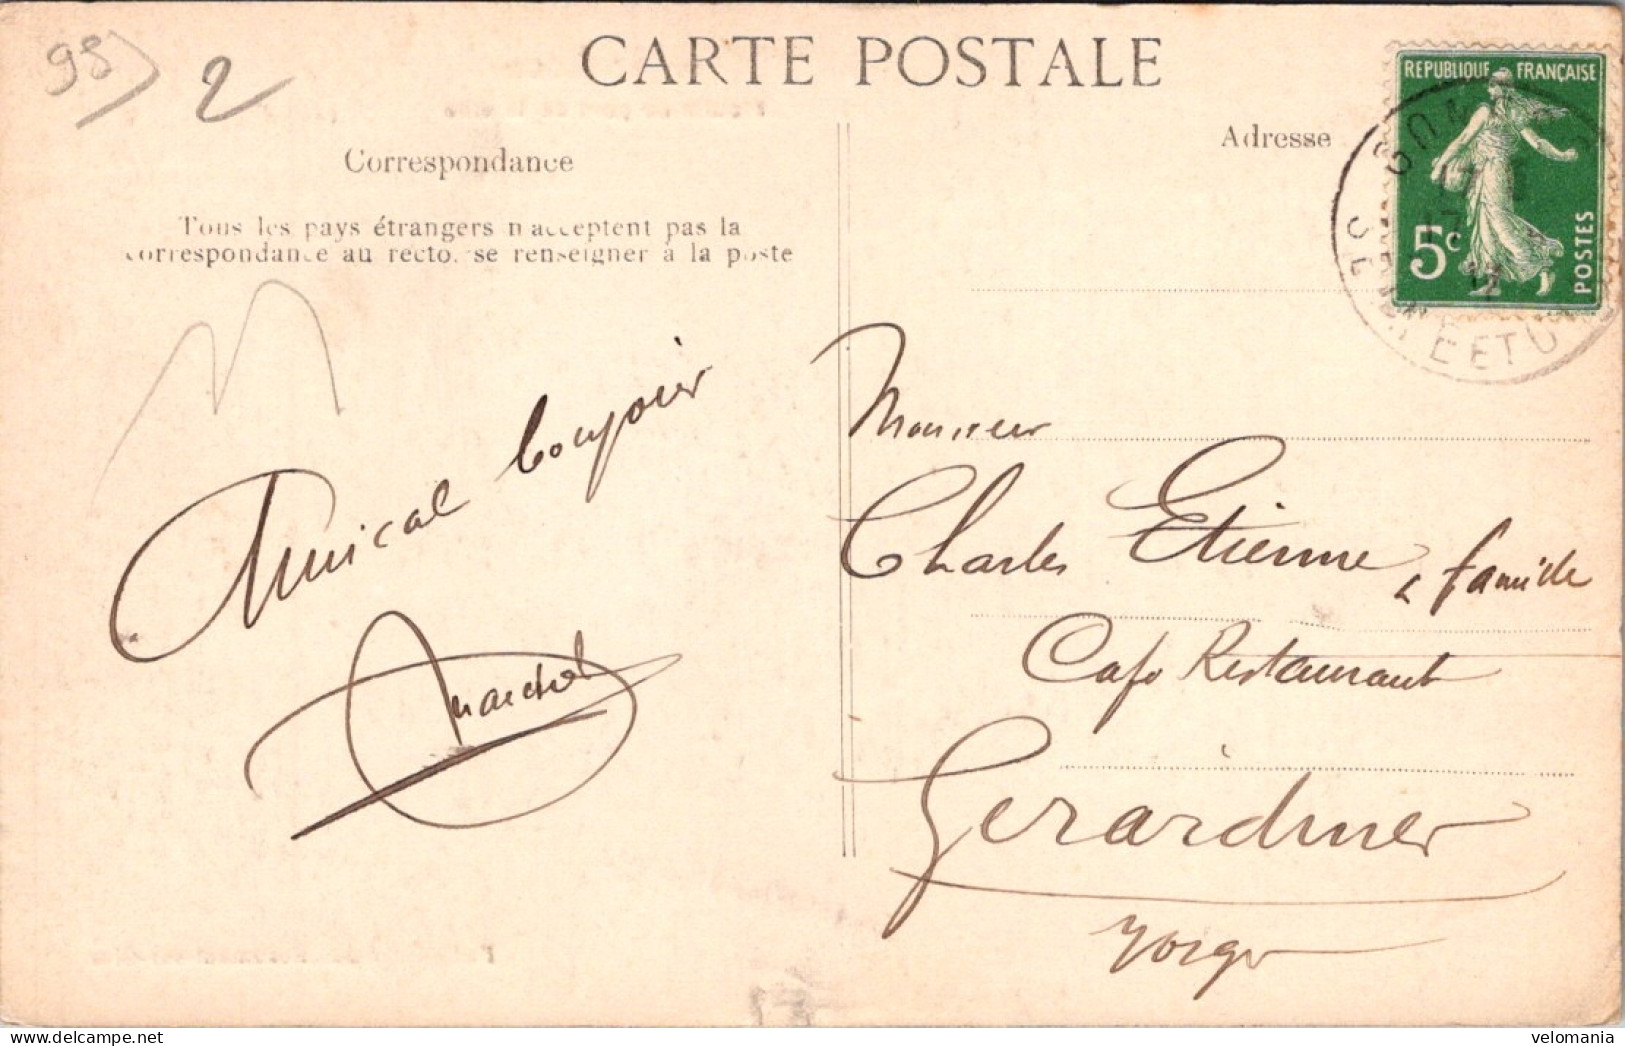 95 2
CARTE POSTALE
Correspondance
Adresse
Tous les pays étrangers n'acceptent pas la
correspondance au recto. se renseigner à la poste
REPUBLIQUE FRANÇAISE
5c
POSTES
Amical bonjour
Monsieur
Charles Etienne & famille
Café Restaurant
Gerardmer
Vosges
velomania